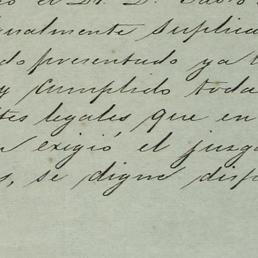 el Dr. D.
ualmente suplica
do presentado ya
y cumplido toda
tes legales que en
exigió el juzga
s, se digne disp